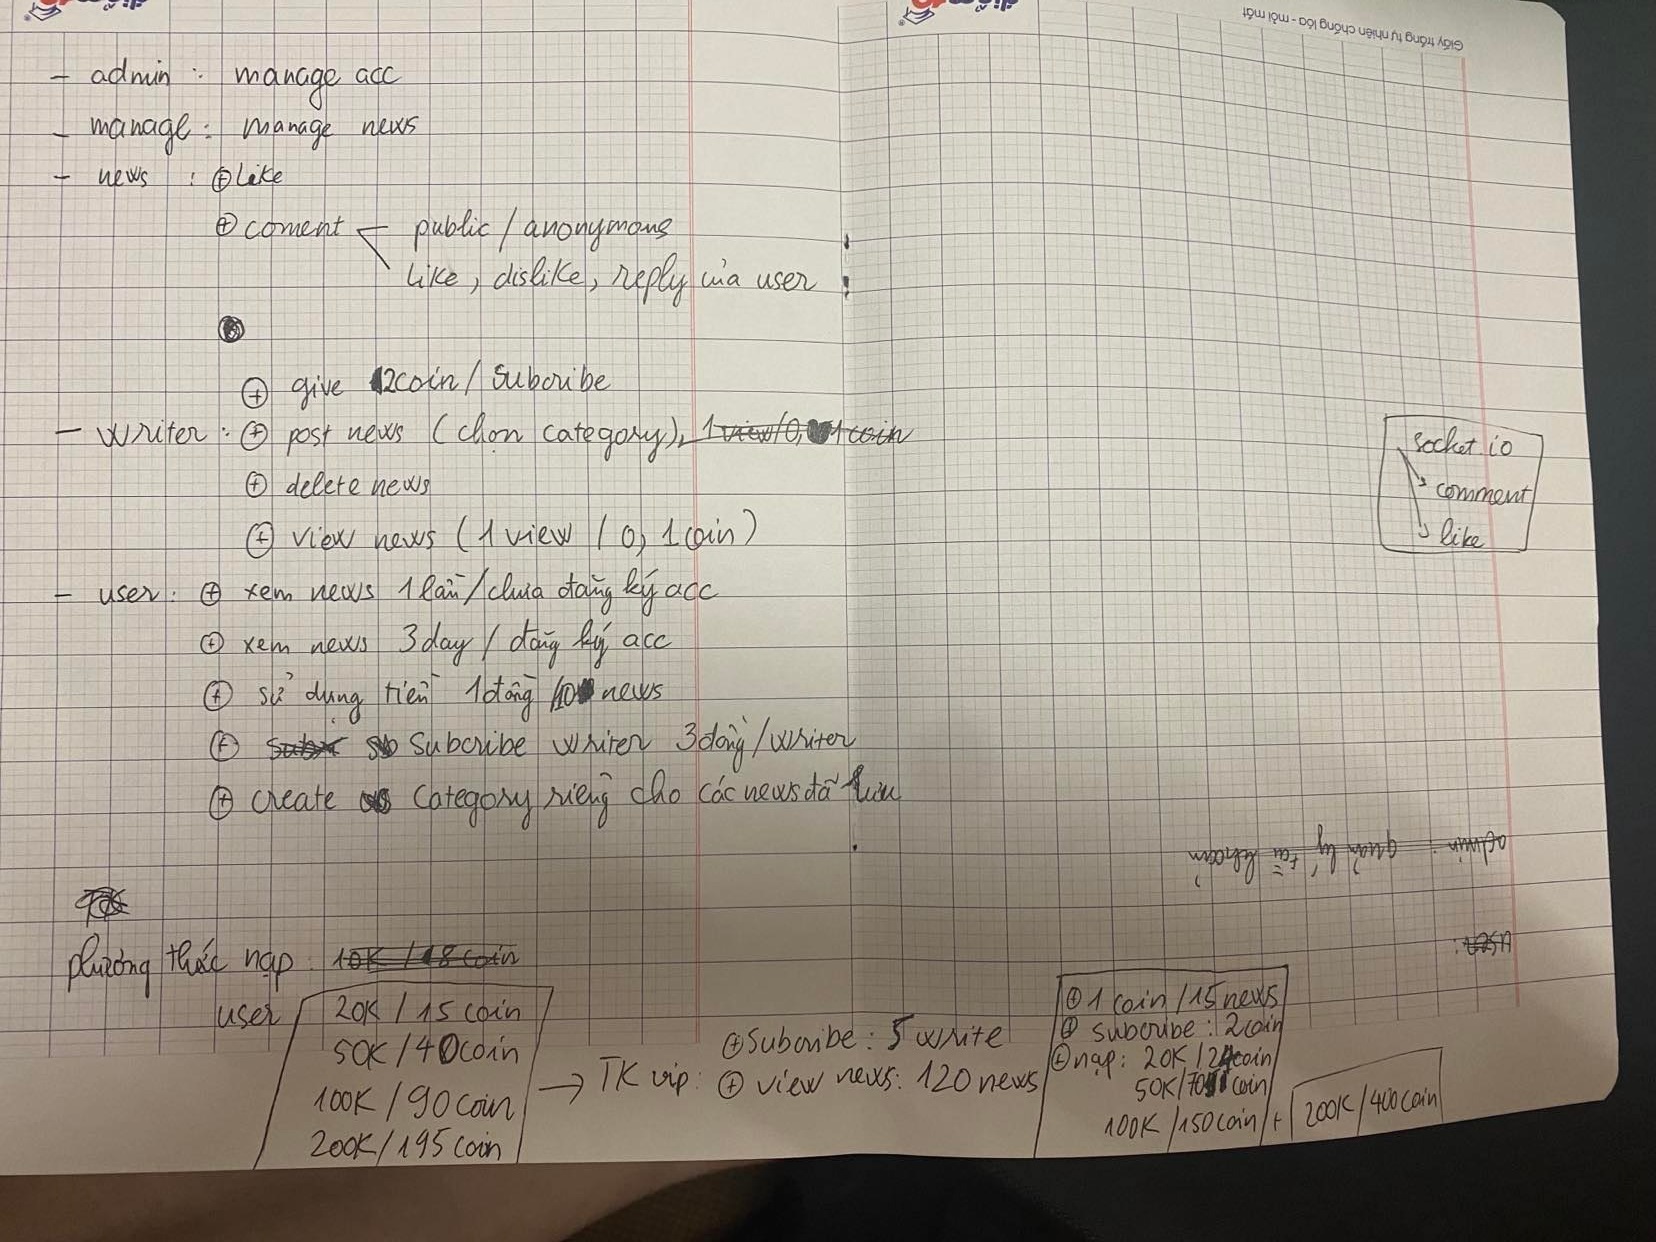 Giấy trắng tự nhiên chống lóa - mỏi mắt
- admin : manage acc
- manage : manage news
- news : ⊕ like
⊕ coment < public / anonymous
like, dislike, reply của user
⊕ give 2coin / Subcribe
- writer : ⊕ post news (chọn category), 1 view/0,1 coin
⊕ delete news
⊕ view news (1 view / 0,1 coin)
- user : ⊕ xem news 1 lần / chưa đăng ký acc
⊕ xem news 3 day / đăng ký acc
⊕ sử dụng tiền 1 đồng /10 news
⊕ Subcribe writer 3 đồng / writer
⊕ create category riêng cho các news đã lưu
socket.io
→ comment
→ like
admin : quản lý tài khoản
user:
phương thức nạp : 10K / 18 coin
user 20K / 15 coin
50K / 40 coin
100K / 90 coin
200K / 195 coin
→ TK vip: ⊕ Subcribe : 5 write
⊕ view news: 120 news
⊕ 1 coin / 15 news
⊕ subcribe : 2 coin
⊕ nạp : 20K / 24 coin
50K / 70 coin
100K / 150 coin / + 200K / 400 coin